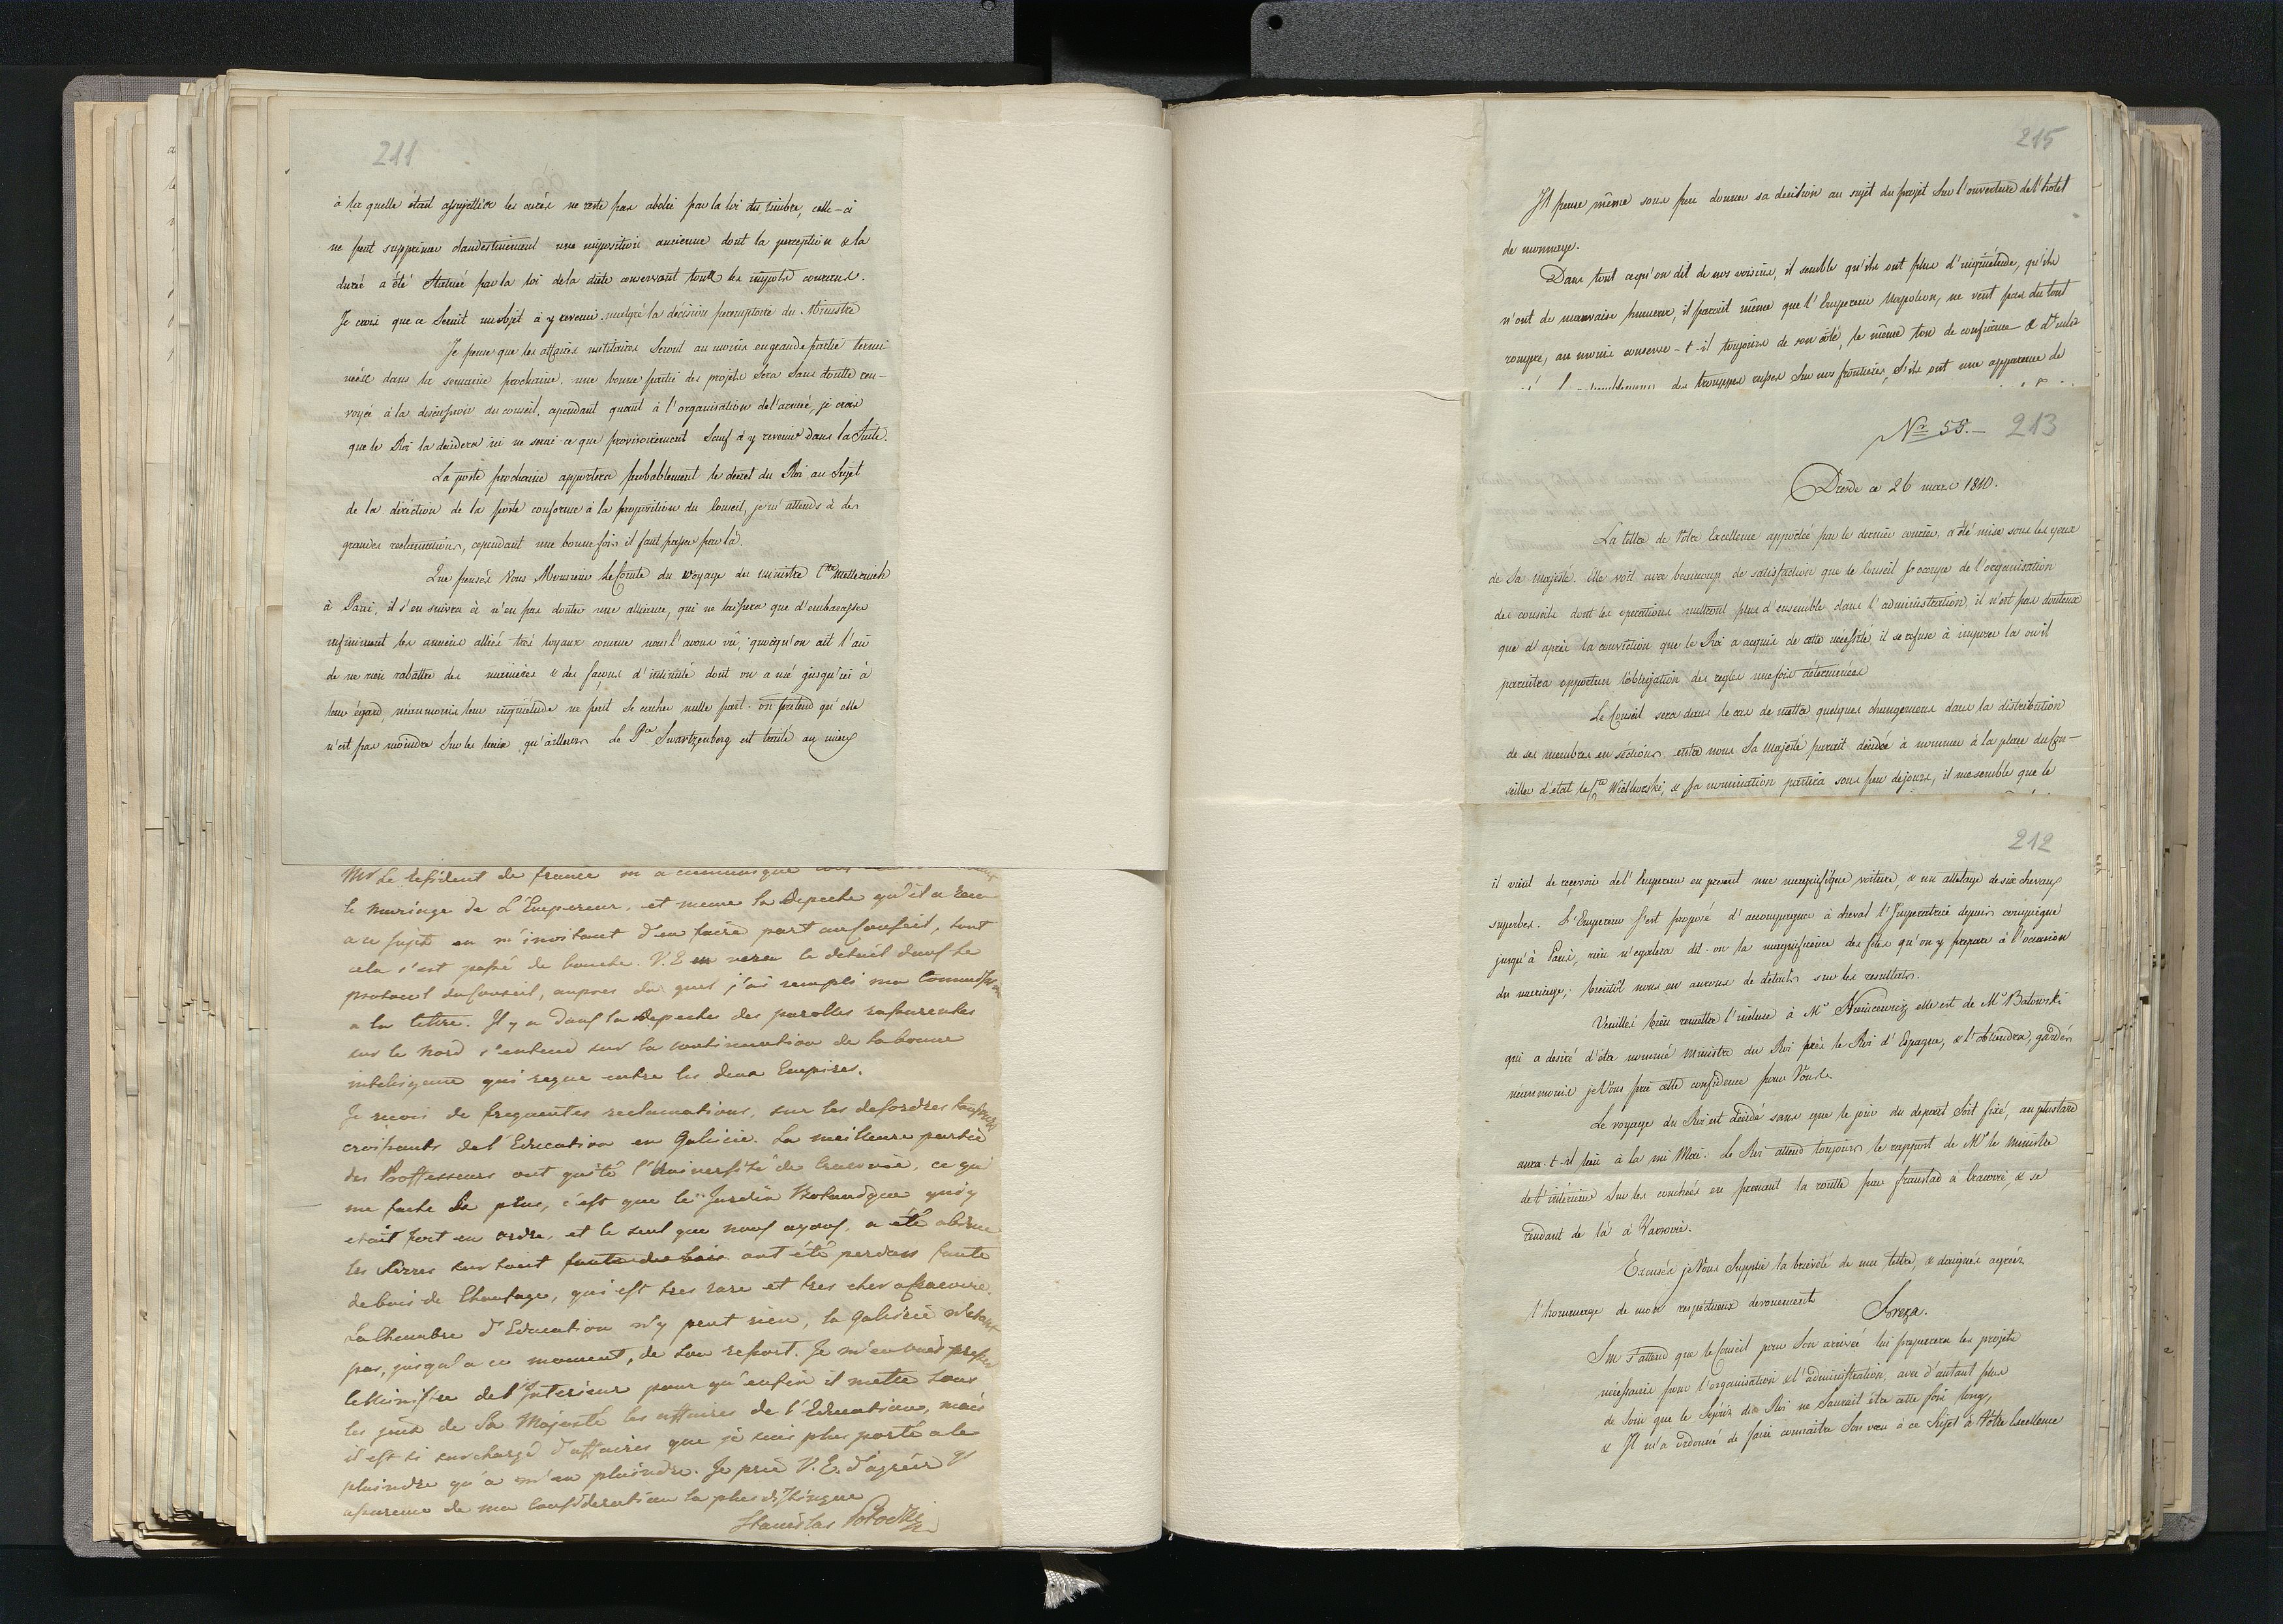 211
à la quelle étant assujettie les curés ne reste pas abolie par la loi du timbre, celle-ci
ne peut supprimer clandestinement une imposition ancienne dont la perception & la
duré a été statuée par la loi de la diète conservant tout les impots courans.
Je crois que ce serait un objet à y revenir malgré la décision peremptoire du Ministre
Je pense que les affaires militaires seront au moins en grande partie termi
nées dans la semaine prochaine. une bonne partie des projets sera sans doutte ren-
voyée à la discussion du conseil, cependant quant à l'organisation de l'armée, je crois
que le Roi la decidera ici ne serai-ce que provisoirement sauf à y revenir dans la suite.
La poste prochaine apportera probablement le decret du Roi au sujet
de la diréction de la poste conforme à la proposition du Conseil, je m'attends à des
grandes reclamations, cependant une bonne fois il faut passer par là.
Que pensés Vous Monsieur le Comte du voyage du ministre Cte Metternich
à Paris, il s'en suivra à n'en pas douter une alliance, qui ne laissera que d'embarasser
infiniment les anciens alliés très loyaux comme nous l'avons vû; quoiqu'on ait l'air
de ne rien rabattre des manières & des façons d'intimité dont on a usé jusqu'ici à
leur égard, néanmoins leur inquiétude ne peut se cacher nulle part. on prétend qu'elle
n'est pas moindre sur les lieux qu'ailleurs le Pce Swartzenberg est traité au mieux
Mr Le Resident de france m a communiqué
le mariage de L'Empereur, et meme la Depeche qu'il a recu
a ce sujet en m'invitant d'en faire part au Conseil, tout
cela s'est passé de bouche. V.E en verra le detail dans le
protocol du Conseil, aupres du quel j'ai rempli ma Commission
a la lettre. Il y a dans la depeche des parolles rassurentes
sur le Nord s'entend sur la continuation de la bonne
inteligence qui regne entre les deux Empires.
Je recois de frequentes reclamations, sur les desordres toujours
croissants de l'Education en Galicie. La meilleure partie
des Proffesseurs ont quité l'Université de Cracovie, ce qui
me fache de plus, c'est que le Jardin Botanique qui y
etait fort en ordre, et le seul que nous ayons, a été abimé
les serres sur tout faute de bois ont été perdues faute
de bois de Chaufage, qui est tres rare et tres cher a Cracovie.
La Chambre d'Education n'y peut rien, la Galicie n'etant
pas, jusqu'a ce moment, de son resort. Je m'en vais presser
le Ministre de l'Interieur pour qu'enfin il mette sous
les yeux de Sa Majesté les affaires de l'Education, mais
il est si surchargé d'affaires que je suis plus porté a le
plaindre qu'a m'en plaindre. Je prie V.E. d'agréér
assurence de ma Consideration la plus distingue
Stanislas Potocki
215
Il pense même sous peu donner sa décision au sujet du projet sur l'ouverture de l'hotel
de monnaye.
Dans tout ce qu'on dit de nos voisins, il semble qu'ils ont plus d'inquiétude, qu'ils
n'ont de mauvaise humeur, il parait même que l'Empereur Napoléon, ne veut pas du tout
rompre, au moins conserve-t-il toujours de son côté, le même ton de confiance &
des trouppes russes sur nos frontières, s'ils ont une apparence de
No 58.- 213
Dresde ce 26 mars 1810.
La lettre de Votre Excellence apportée par le dernier courier, a été mise sous les yeux
de Sa Majesté. Elle voit avec beaucoup de satisfaction que le Conseil s'occupe de l'organisation
des conseils dont les opérations mettront plus d'ensemble dans l'administration, il n'est pas douteux
que d'après la conviction que le Roi a acquis de cette nécessité, il se refuse à imposer la ou il
paraitra opportun l'obligation des regles une fois déterminées
Le Conseil sera dans le cas de mettre quelques changemens dans la distribution
de ses membres en séctions, entre nous Sa Majesté parait décidée à nommer à la place du Con-
seiller d'état le Cte Wielhorski, & sa nomination partira sous peu de jours, il me semble que le
212
il vient de reçevoir de l'Empereur en present une magnifique voiture, & un attelage de six chevaux
superbes. L'Empereur s'est proposé d'accompagner à cheval l'Imperatrice depuis compiegne
jusqu'à Paris, rien n'egalera dit-on la magnificence des fêtes qu'on y prepare à l'occasion
du mariage; bientôt nous en aurons de détails sur les resultats.
Veuillés bien remettre l'incluse à Mr Niemcewicz elle est de Mr Batowski
qui a desiré d'être nommé ministre du Roi près le Roi d'Espagne, & l'obtiendra, gardés
néanmoins je Vous prie cette confidence pour Vous.
Le voyage du Roi est décidé sans que le jour du depart soit fixé, au plustard
aura-t-il lieu à la mi Mai. Le Roi attend toujours le rapport de Mr le ministre
de l'intérieur sur les couchées en prenant la routte par fraustad à Cracovie, & se
rendant de là à Varsovie.
Excusés je Vous supplie la brièvété de ma lettre, & daignés agréer
l'hommage de mon respectueux devouement Breza.
SM s'attend que le Conseil pour son arrivée lui preparera les projets
nécessaires pour l'organisation & l'administration, avec d'autant plus
de soin que le séjour du Roi ne saurait être cette fois, long,
& Il m'a ordonné de faire connaitre son vœu à ce sujet à Votre Excellence